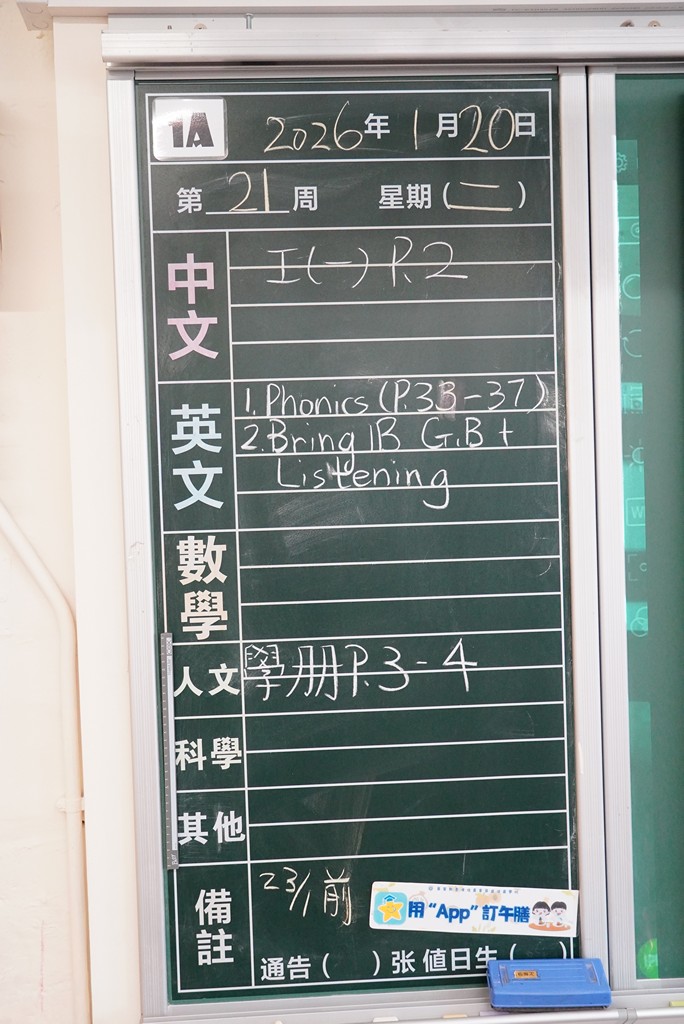 1A
2026年 1月20日
第 21 周 星期(二)
中文
工(一) P.2
英文
1. Phonics (P.33-37)
2. Bring 1B G.B +
Listening
數學
人文
學册 P.3-4
科學
其他
備註
23/1前
用“App”訂午膳
通告( )张 値日生( )